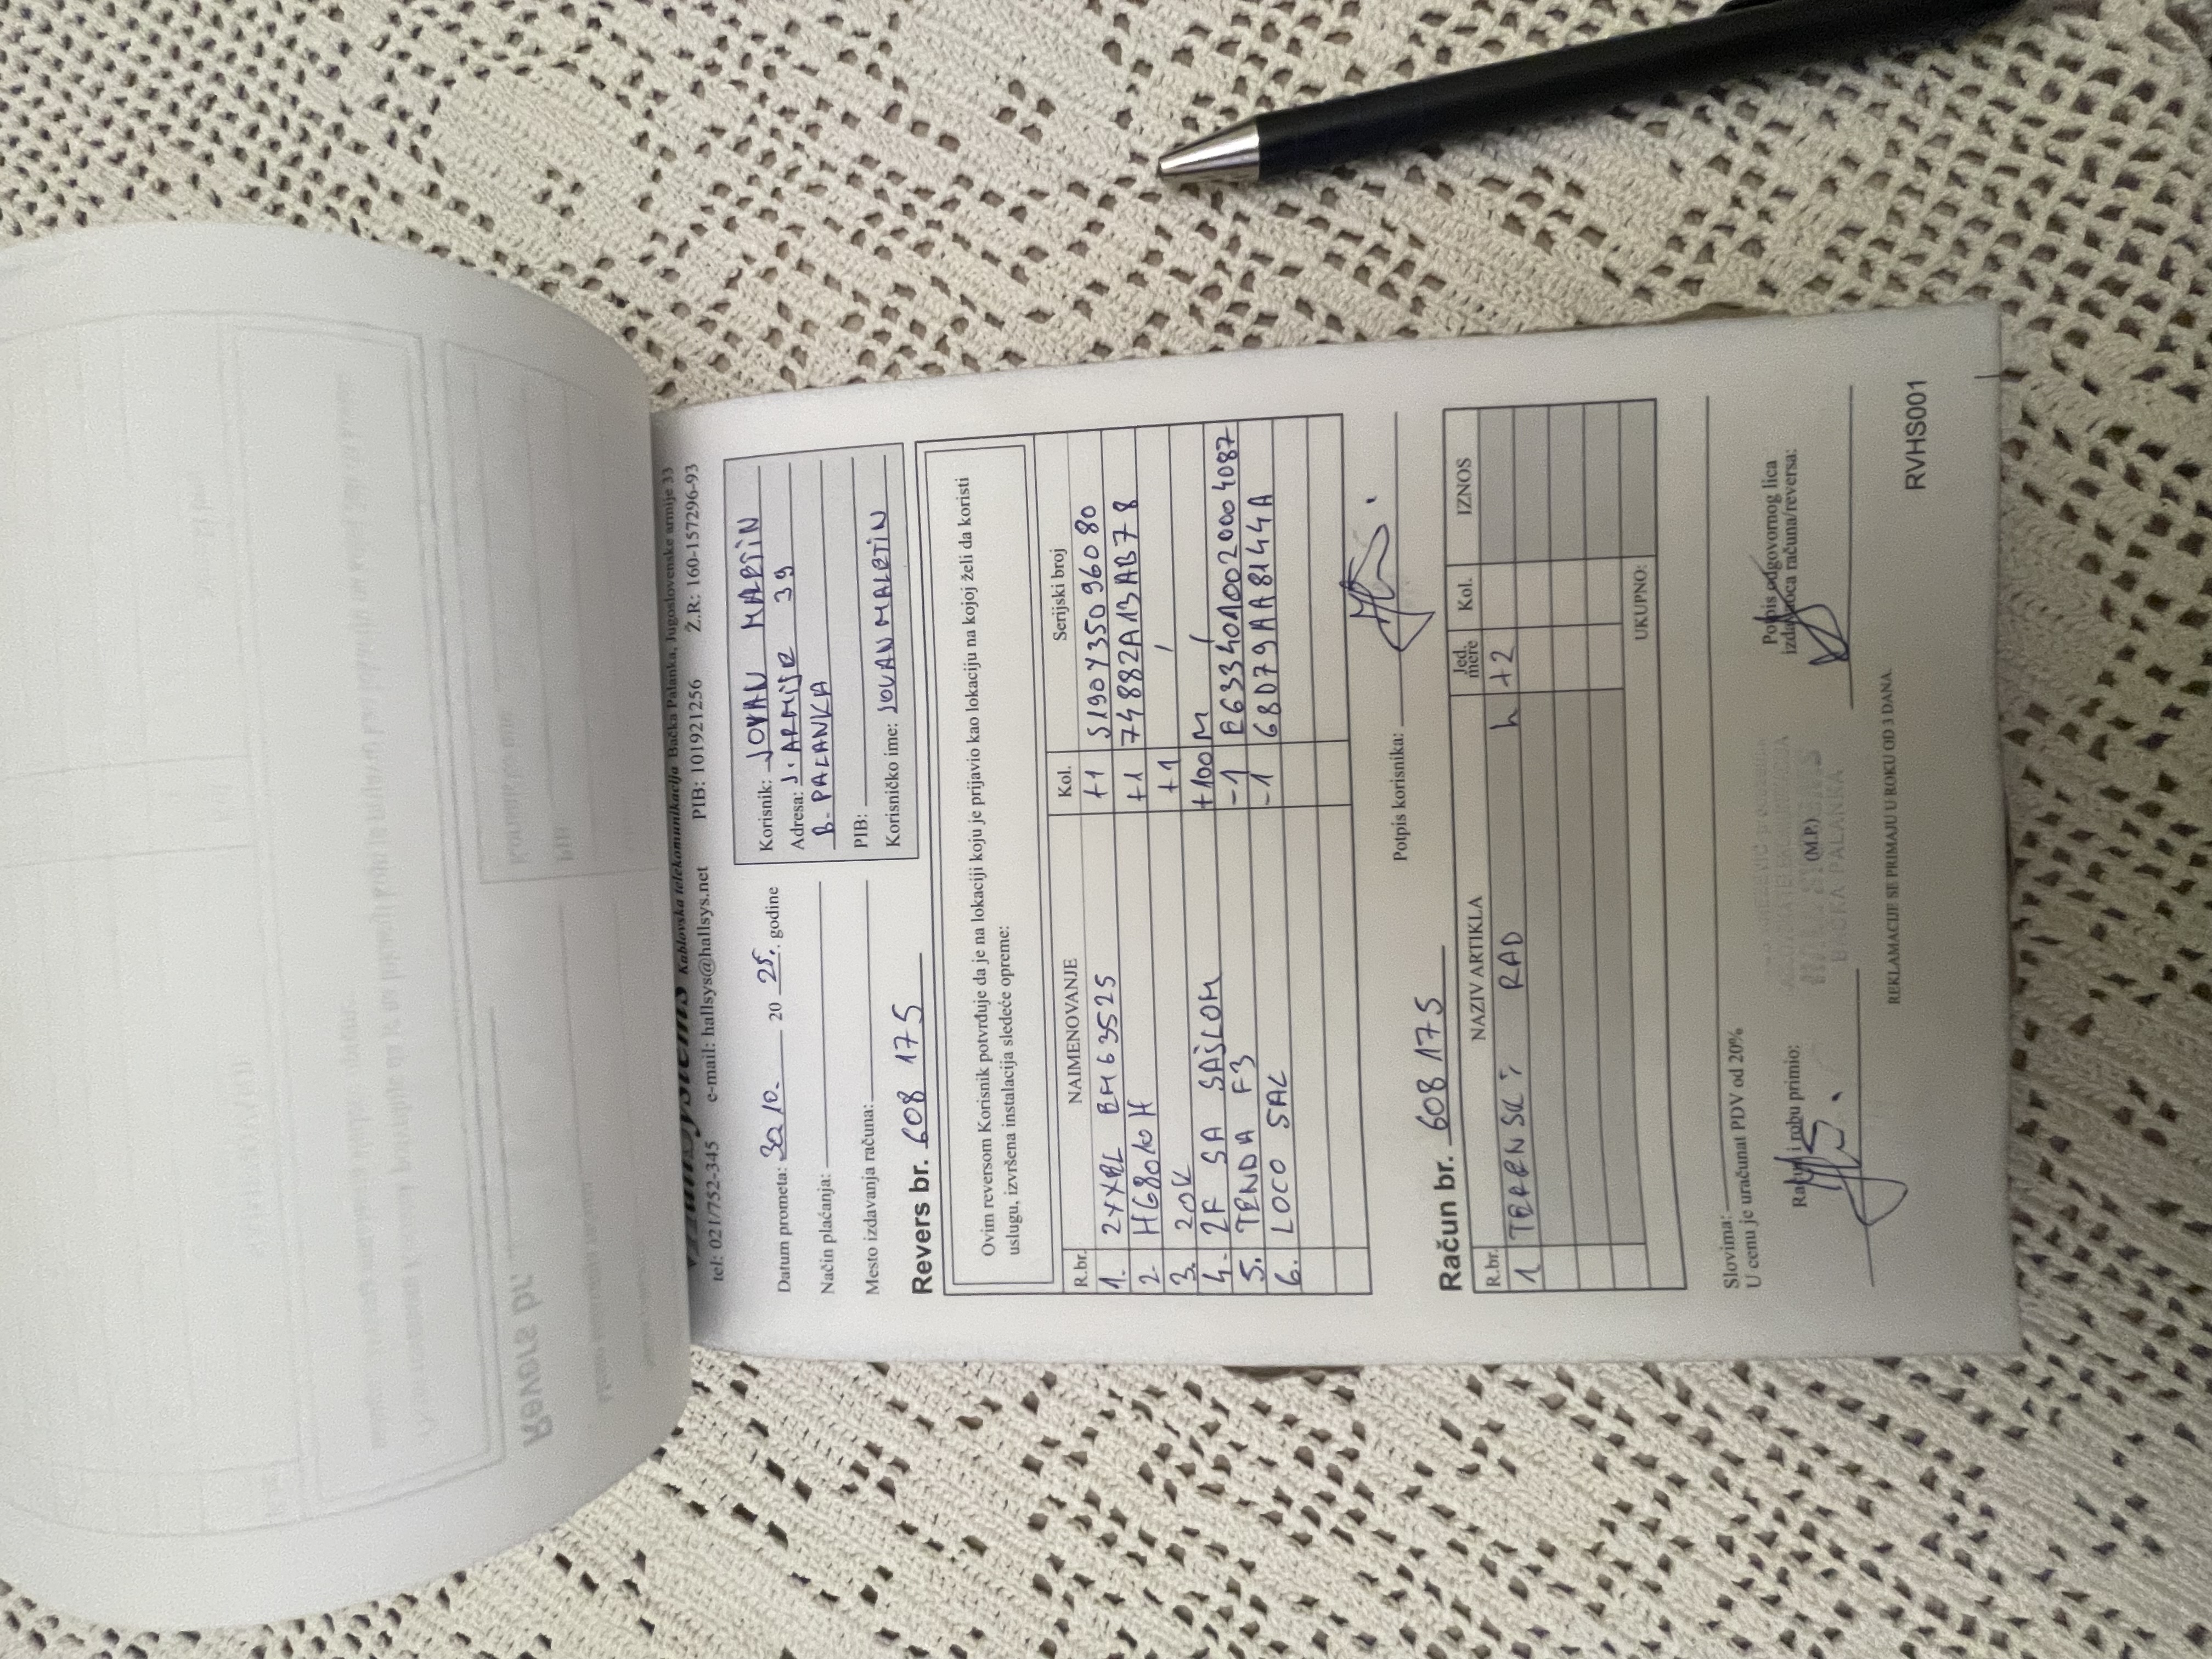 Kablovska telekomunikacija Bačka Palanka, Jugoslovenske armije 33
tel: 021/752-345 e-mail: hallsys@hallsys.net PIB: 101921256 Ž.R: 160-157296-93
Datum prometa: 30.10. 20 25. godine
Način plaćanja:
Mesto izdavanja računa:
Korisnik: JOVAN MALETIN
Adresa: J. ARMIJE 39
B. PALANKA
PIB:
Korisničko ime: JOVANMALETIN
Revers br. 608 175
Ovim reversom Korisnik potvrđuje da je na lokaciji koju je prijavio kao lokaciju na kojoj želi da koristi
uslugu, izvršena instalacija sledeće opreme:
R.br. NAIMENOVANJE Kol. Serijski broj
1. ZYXEL EM63525 +1 S190Y35096080
2. HG8010H +1 74882A13AB78
3. ZOK +1 /
4. 2F SA SAJLOM +100M /
5. TENDA F3 -1 E6334010020004087
6. LOCO SAC -1 68D79AA8144A
Potpis korisnika:
Račun br. 608 175
R.br. NAZIV ARTIKLA Jed. mere Kol. IZNOS
1 TERENSKI RAD h +2
UKUPNO:
Slovima:
U cenu je uračunat PDV od 20%
Račun i robu primio:
(M.P.)
BAČKA PALANKA
Potpis odgovornog lica
izdavaoca računa/reversa:
REKLAMACIJE SE PRIMAJU U ROKU OD 3 DANA.
RVHS001
Revers br.